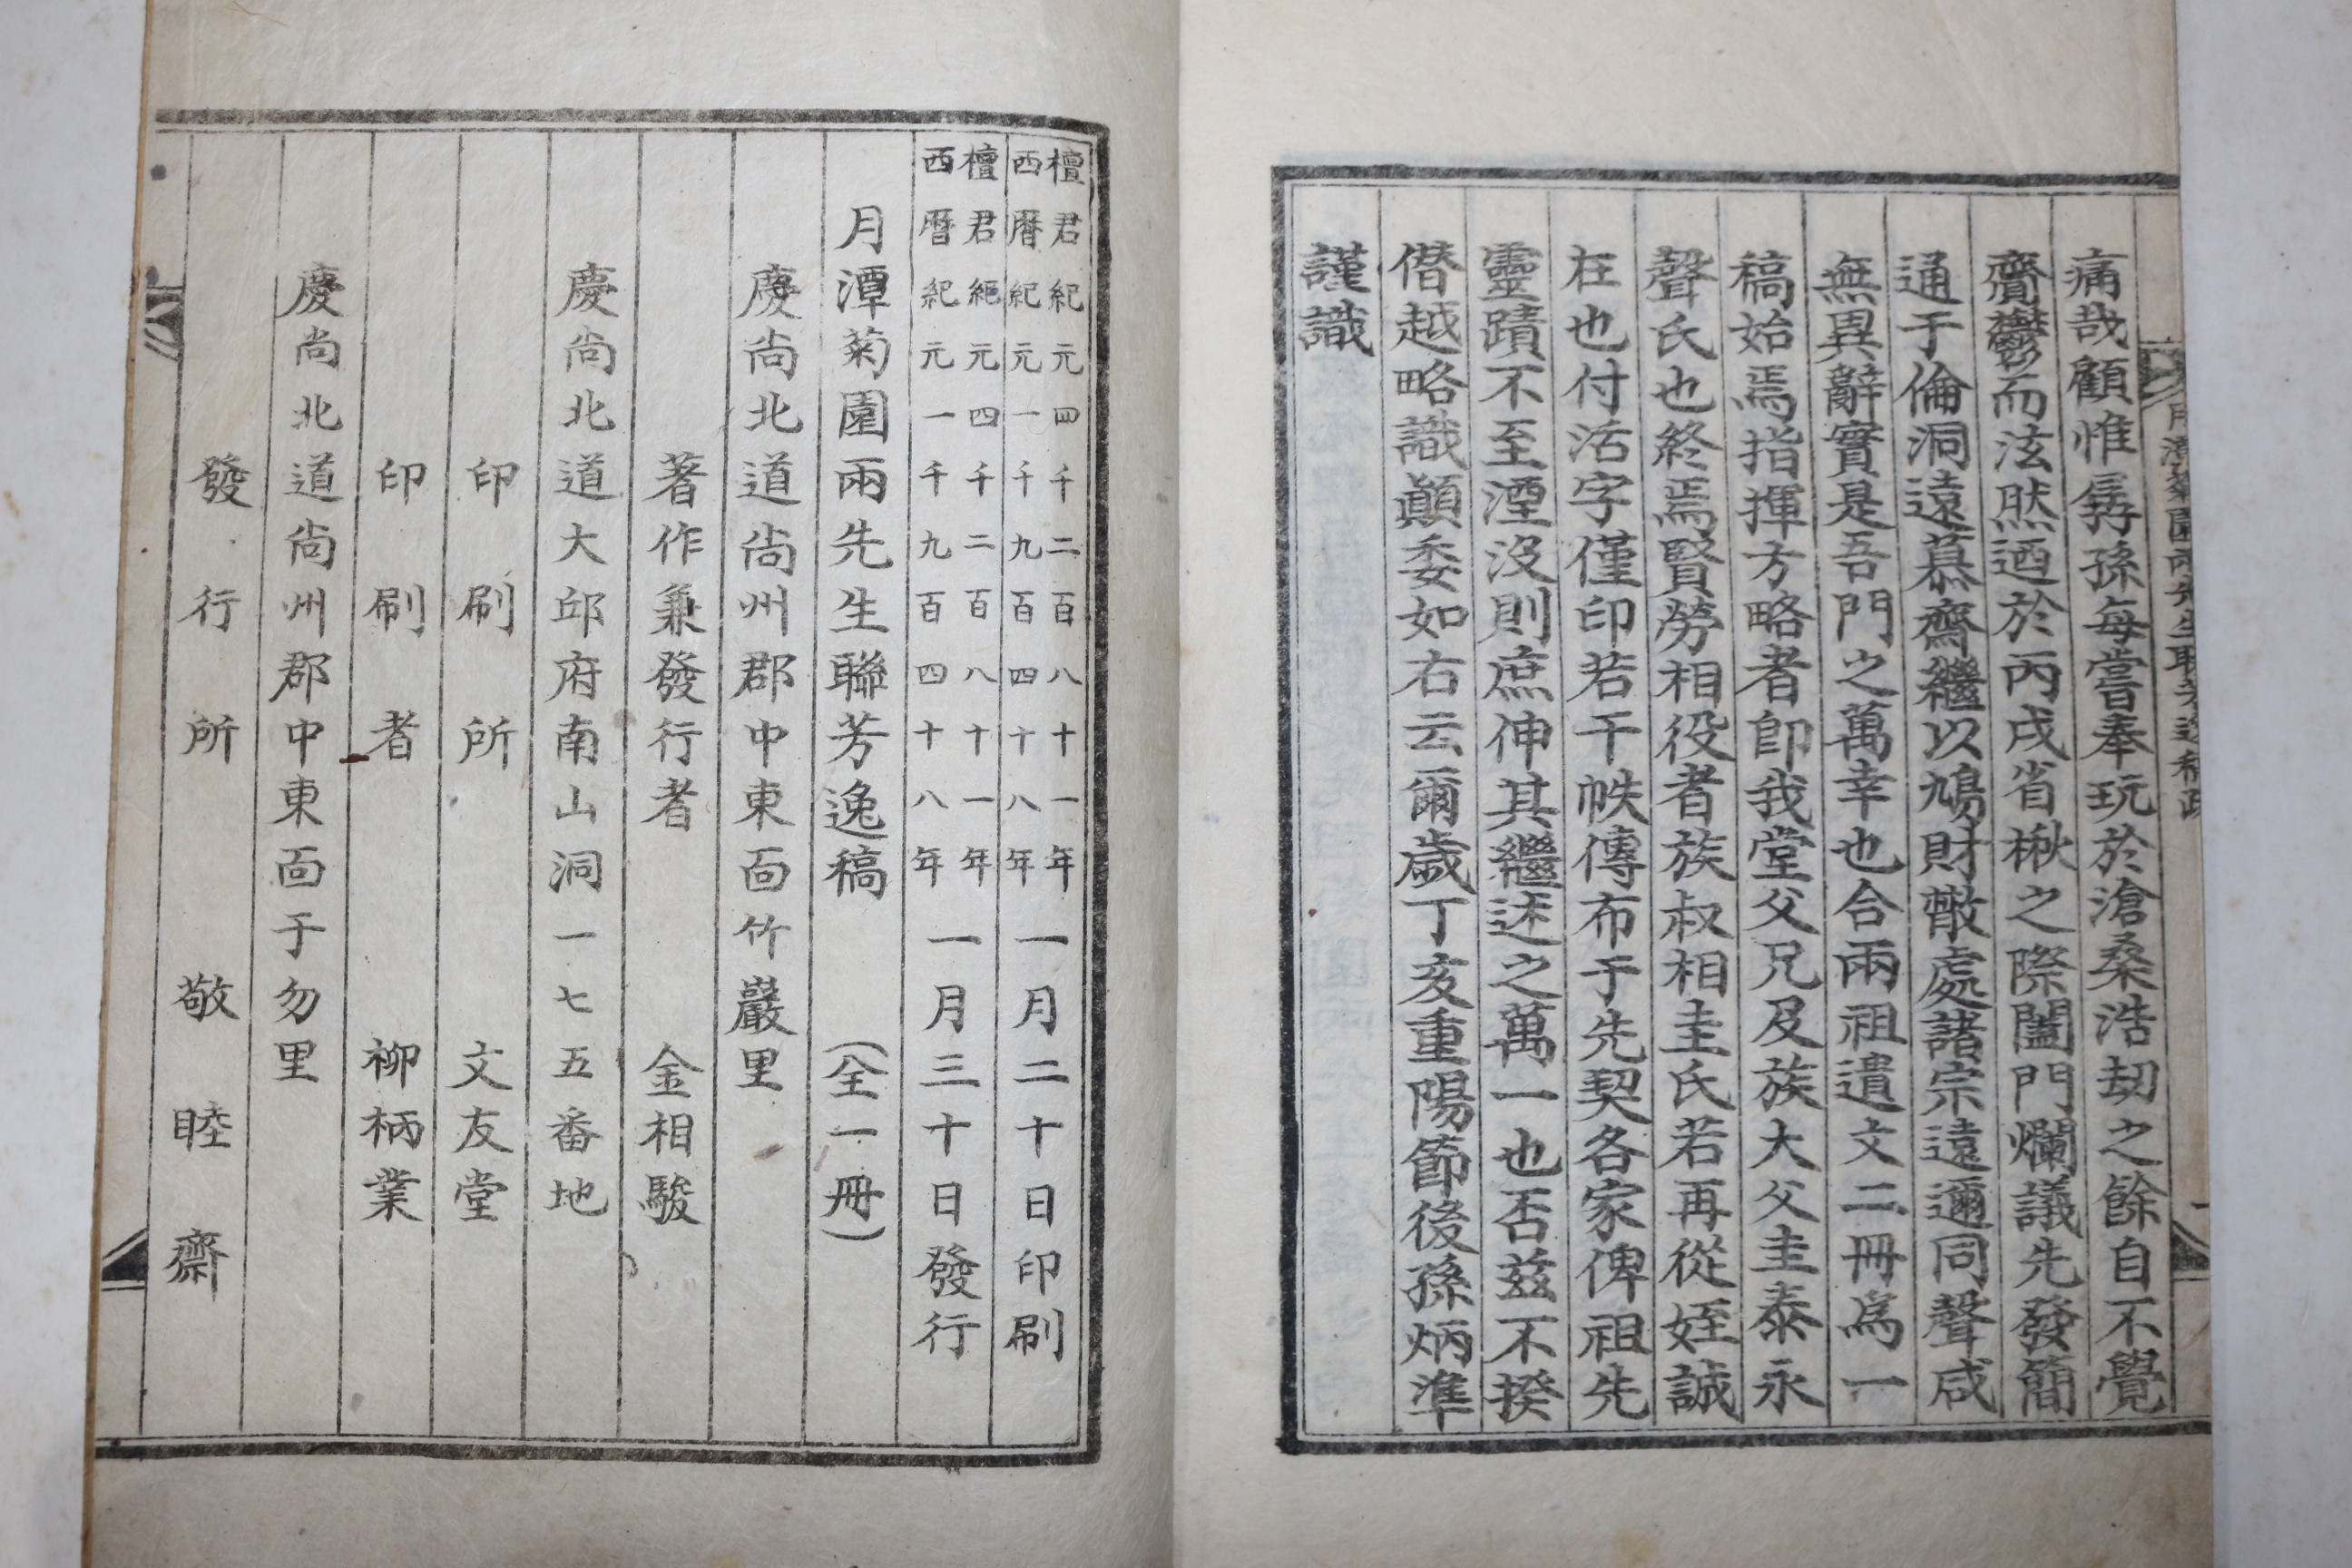 痛哉顧惟孱孫每嘗奉玩於滄桑浩劫之餘自不覺
齎鬱而泫然迺於丙戌省楸之際闔門爛議先發簡
通于倫洞遠慕齋繼以鳩財散處諸宗遠邇同聲咸
無異辭實是吾門之萬幸也合兩祖遺文二冊爲一
稿始焉指揮方略者卽我堂父兄及族大父圭泰永
聲氏也終焉賢勞相役者族叔相圭氏若再從姪誠
在也付活字僅印若干帙傳布于先契各家俾祖先
靈蹟不至湮沒則庶伸其繼述之萬一也否玆不揆
僭越略識顚委如右云爾歲丁亥重陽節後孫炳準
謹識
檀君紀元四千二百八十一年
西曆紀元一千九百四十八年 一月二十日印刷
檀君紀元四千二百八十一年
西曆紀元一千九百四十八年 一月三十日發行
月潭菊園兩先生聯芳逸稿 (全一冊)
慶尙北道尙州郡中東面竹巖里
著作兼發行者 金相駿
慶尙北道大邱府南山洞一七五番地
印刷所 文友堂
印刷者 柳柄業
慶尙北道尙州郡中東面于勿里
發行所 敬睦齋